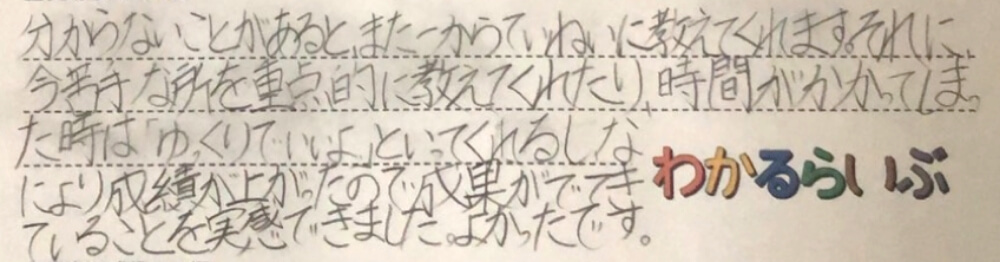 分からないことがあると、また一からていねいに教えてくれます。それに、
今苦手な所を重点的に教えてくれたり、時間がかかってしまっ
た時は「ゆっくりでいいよ」といってくれるしな
により成績が上がったので成果がでてき
ていることを実感できました。よかったです。
わかるらいぶ